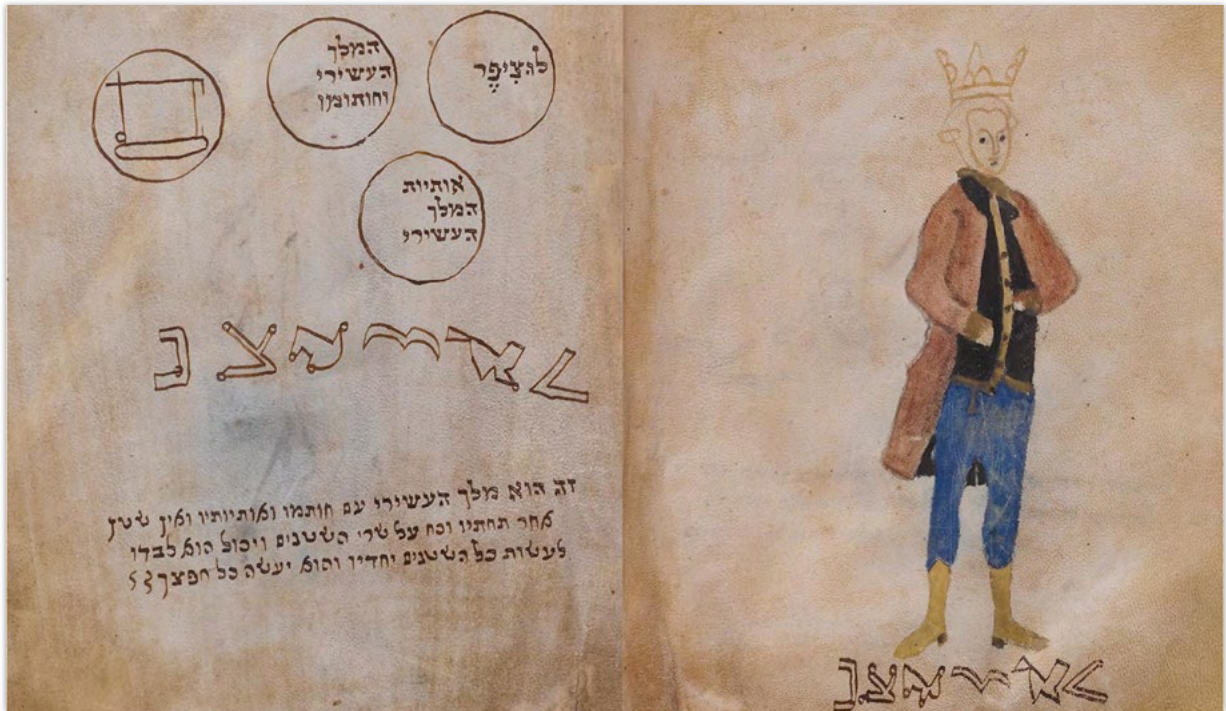 לוּצִיפֶר
המלך
העשירי
וחותומו
אותיות
המלך
העשירי
זה הוא מלך העשירי עם חותמו ואותיותיו ואין שטן
אחר תחתיו וכח על שרי השטנים ויכול הוא לבדו
לעשות כל השטנים יחדיו והוא יעשה כל חפצך